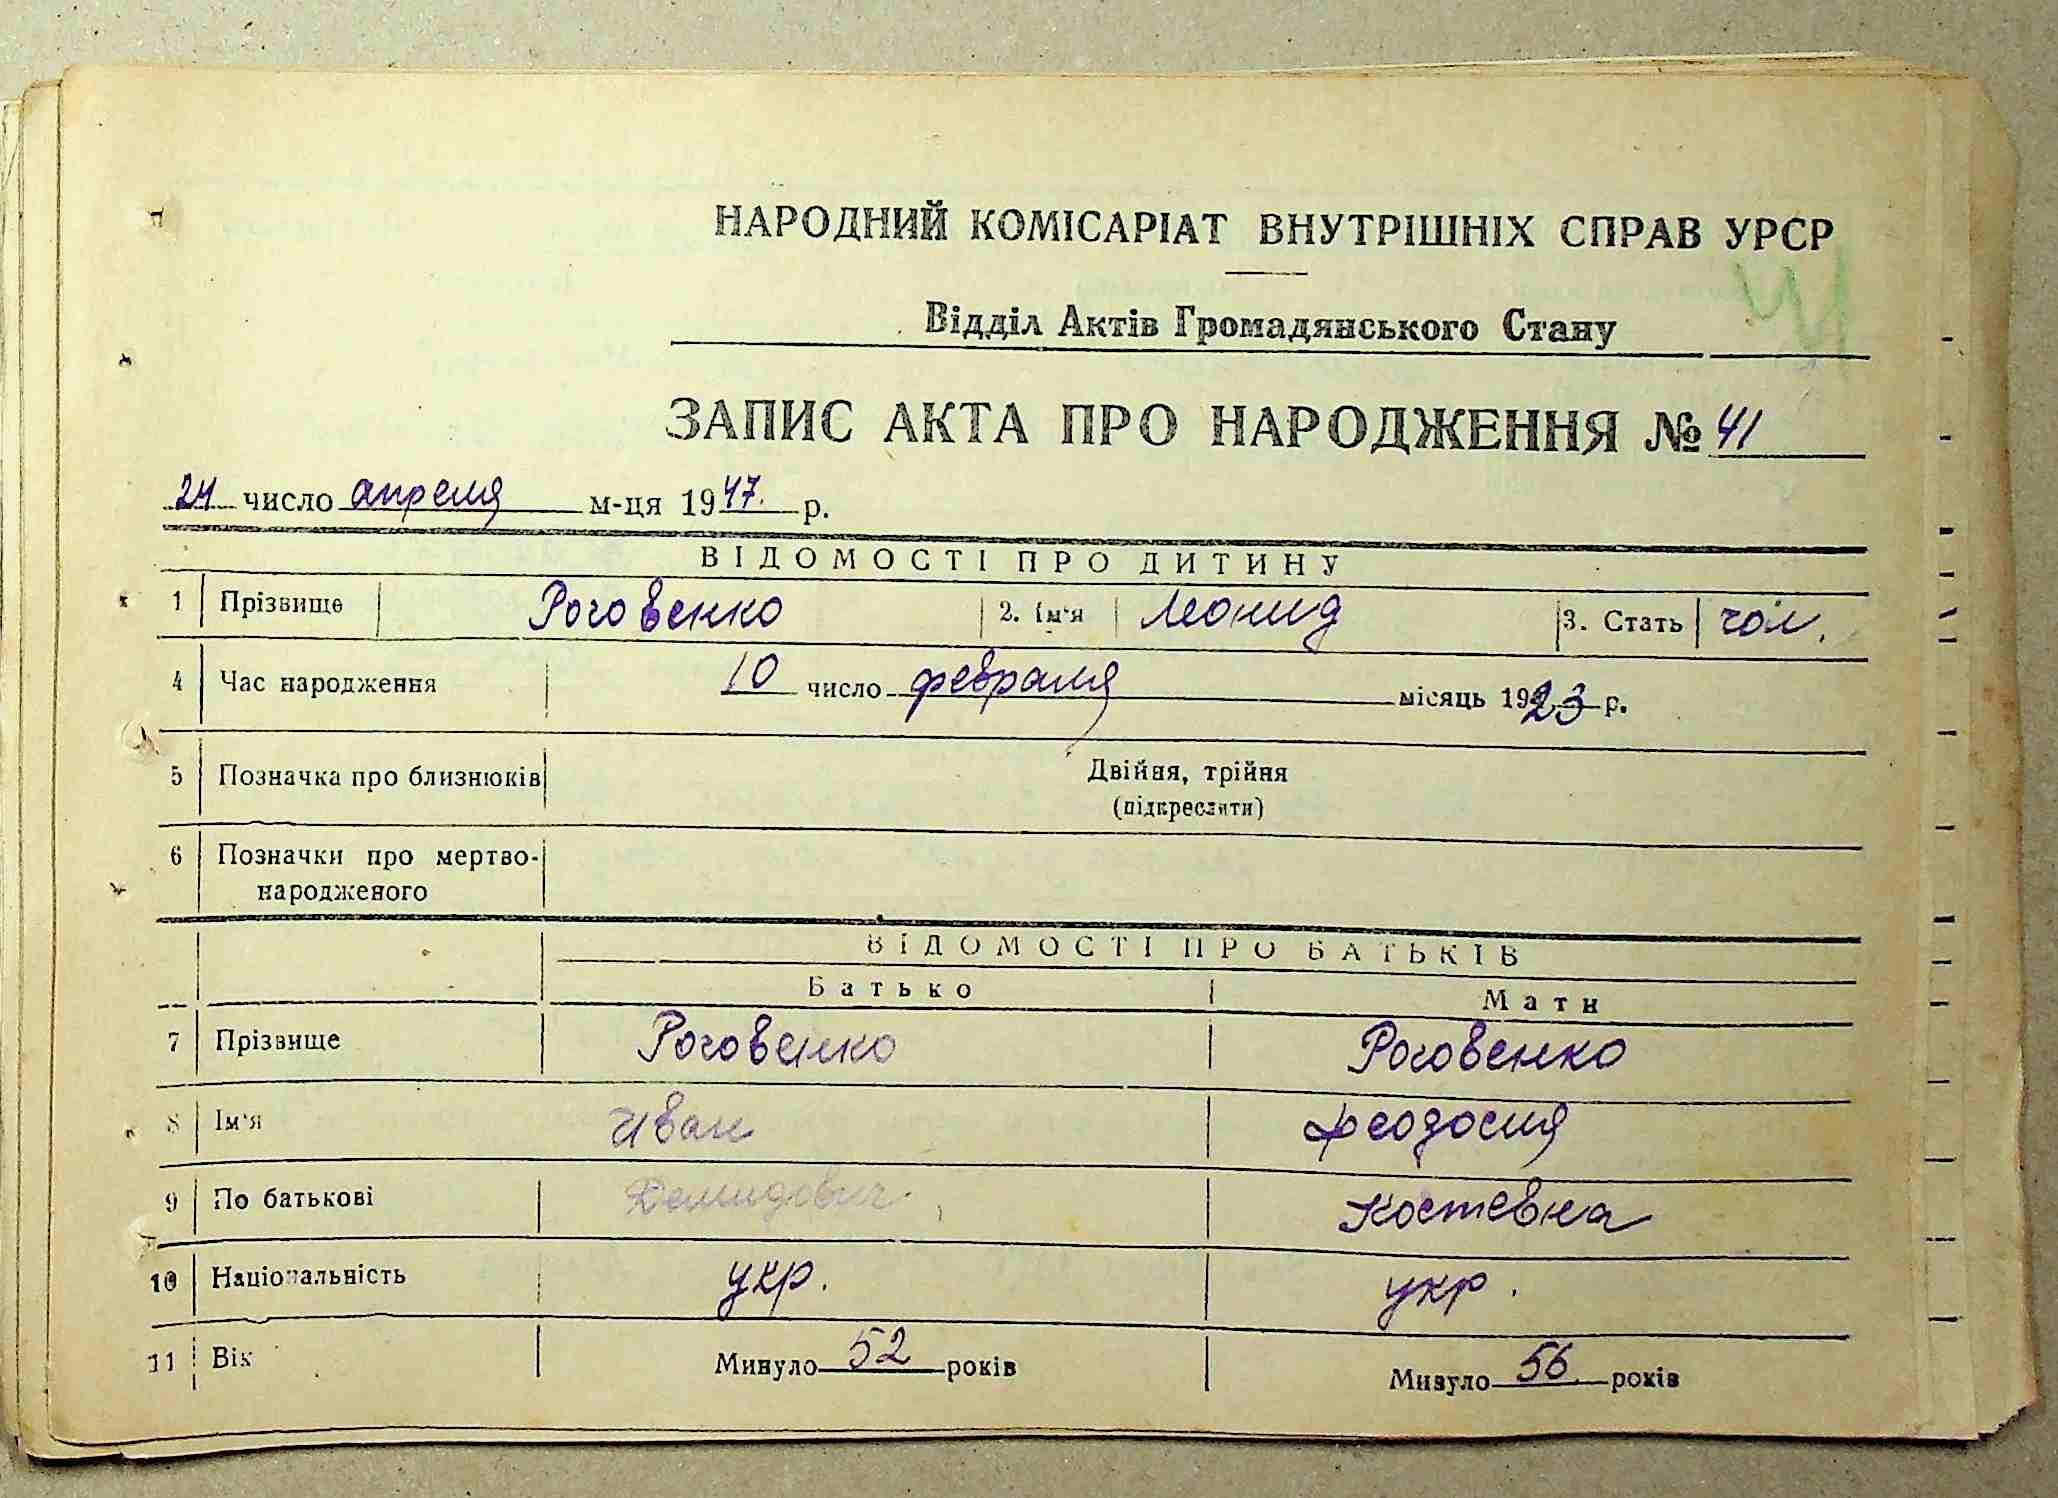 НАРОДНИЙ КОМІСАРІАТ ВНУТРІШНІХ СПРАВ УРСР
Відділ Актів Громадянського Стану
ЗАПИС АКТА ПРО НАРОДЖЕННЯ № 41
24 число апреля м-ця 1947. р.
ВІДОМОСТІ ПРО ДИТИНУ
1 Прізвище Роговенко 2. Ім'я Леонид 3. Стать чол.
4 Час народження 10 число февраля місяць 1923 р.
5 Позначка про близнюків Двійня, трійня
(підкреслити)
6 Позначки про мертво-
народженого
ВІДОМОСТІ ПРО БАТЬКІВ
Батько Мати
7 Прізвище Роговенко Роговенко
8 Ім'я Иван Феодосия
9 По батькові Демидович Костевна
10 Національність укр. укр.
11 Вік Минуло 52 років Минуло 56 років